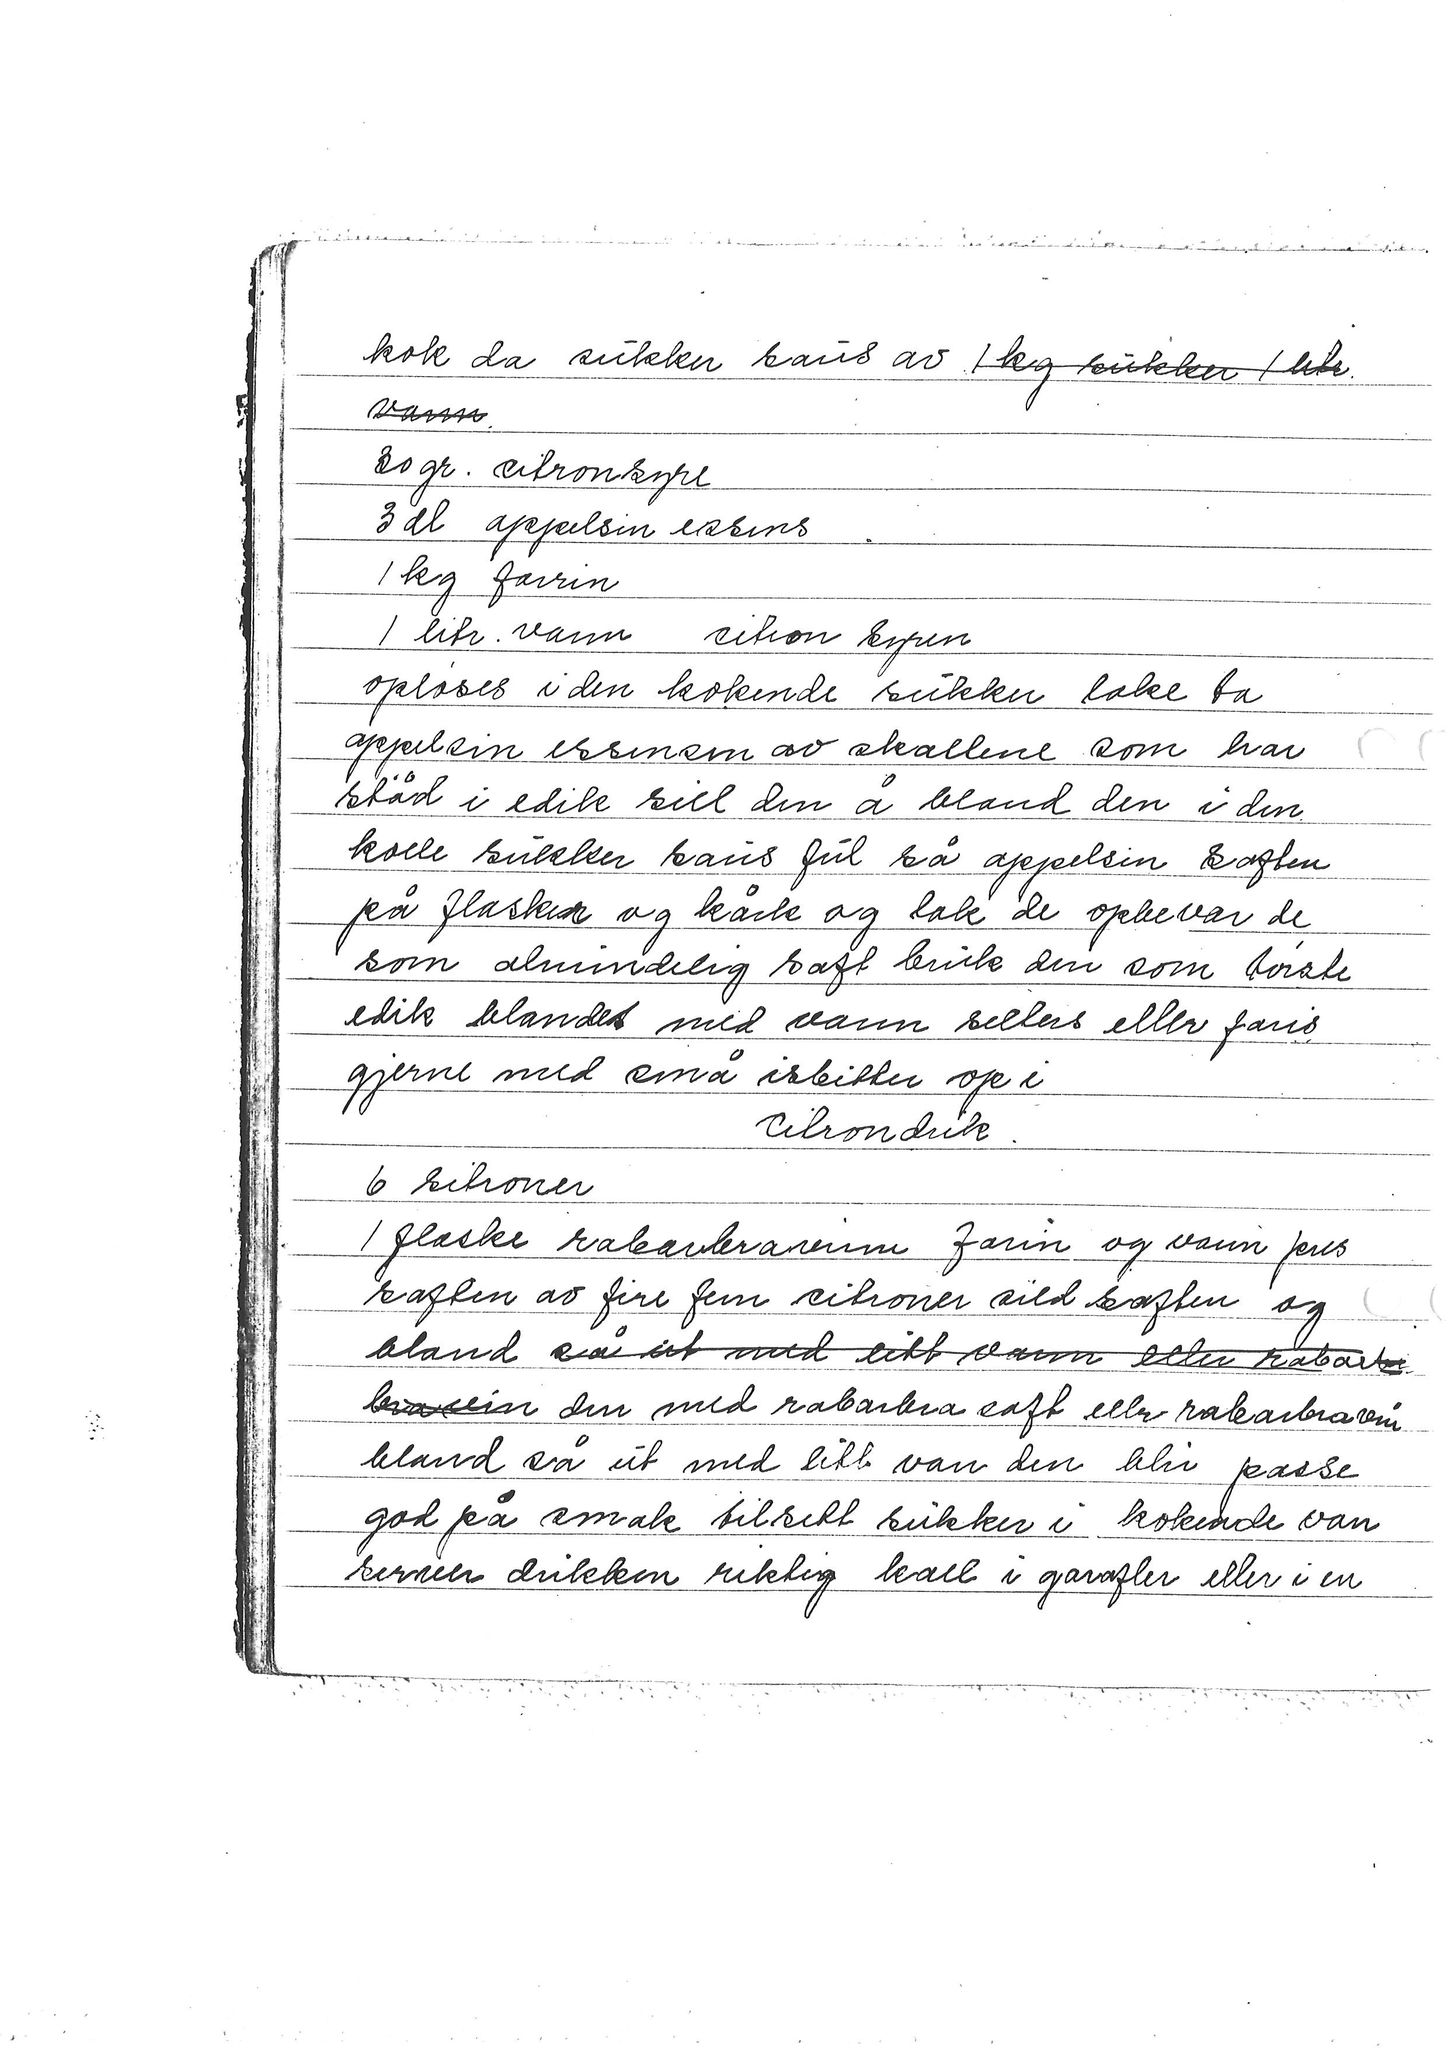 kok da sukker saus av 1 kg sukker 1 litr.
vann.
30 gr. citronsyre
3 dl appelsin essens
1 kg farrin
1 litr. vann citron syren
opløses i den kokende sukker lake ta
appelsin essensen av skallene som har
ståd i edik sill den å bland den i den
kolle sukker saus ful så appelsin saften
på flasker og kårk og lak de opbevar de
som almindelig saft bruk den som tørste
edik blandet med vann selters eller faris
gjerne med små isbitter op i
Citrondrik.
6 sitroner
1 flaske rabarbravinn farin og vann pres
saften av fire fem citroner sild saften og
bland så ut med litt vann eller rabarbr
bravein den med rabarbra saft eller rabarbravin
bland så ut med litt van den blir passe
god på smak tilsett sukker i kokende van
server drikken riktig kall i garafler eller i en